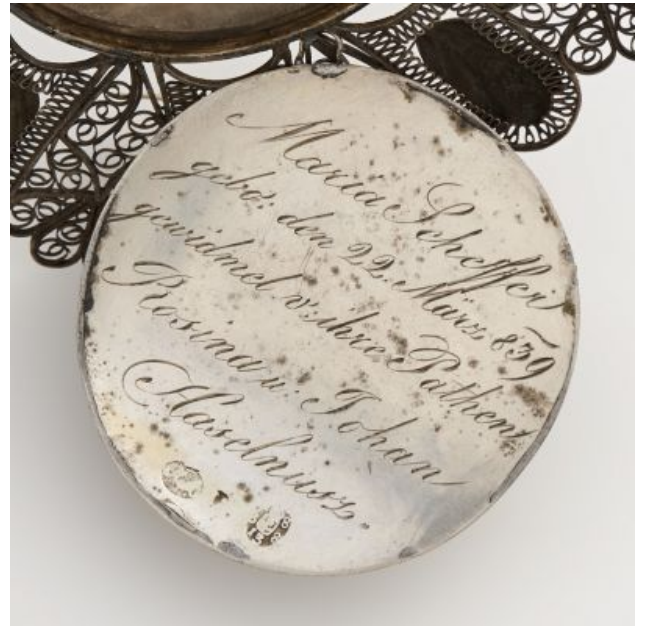 Maria Scheffer
gebo: den 22. März 859
gewidmet v: ihre Pathen
Rosina u. Johan
Haselnusz.